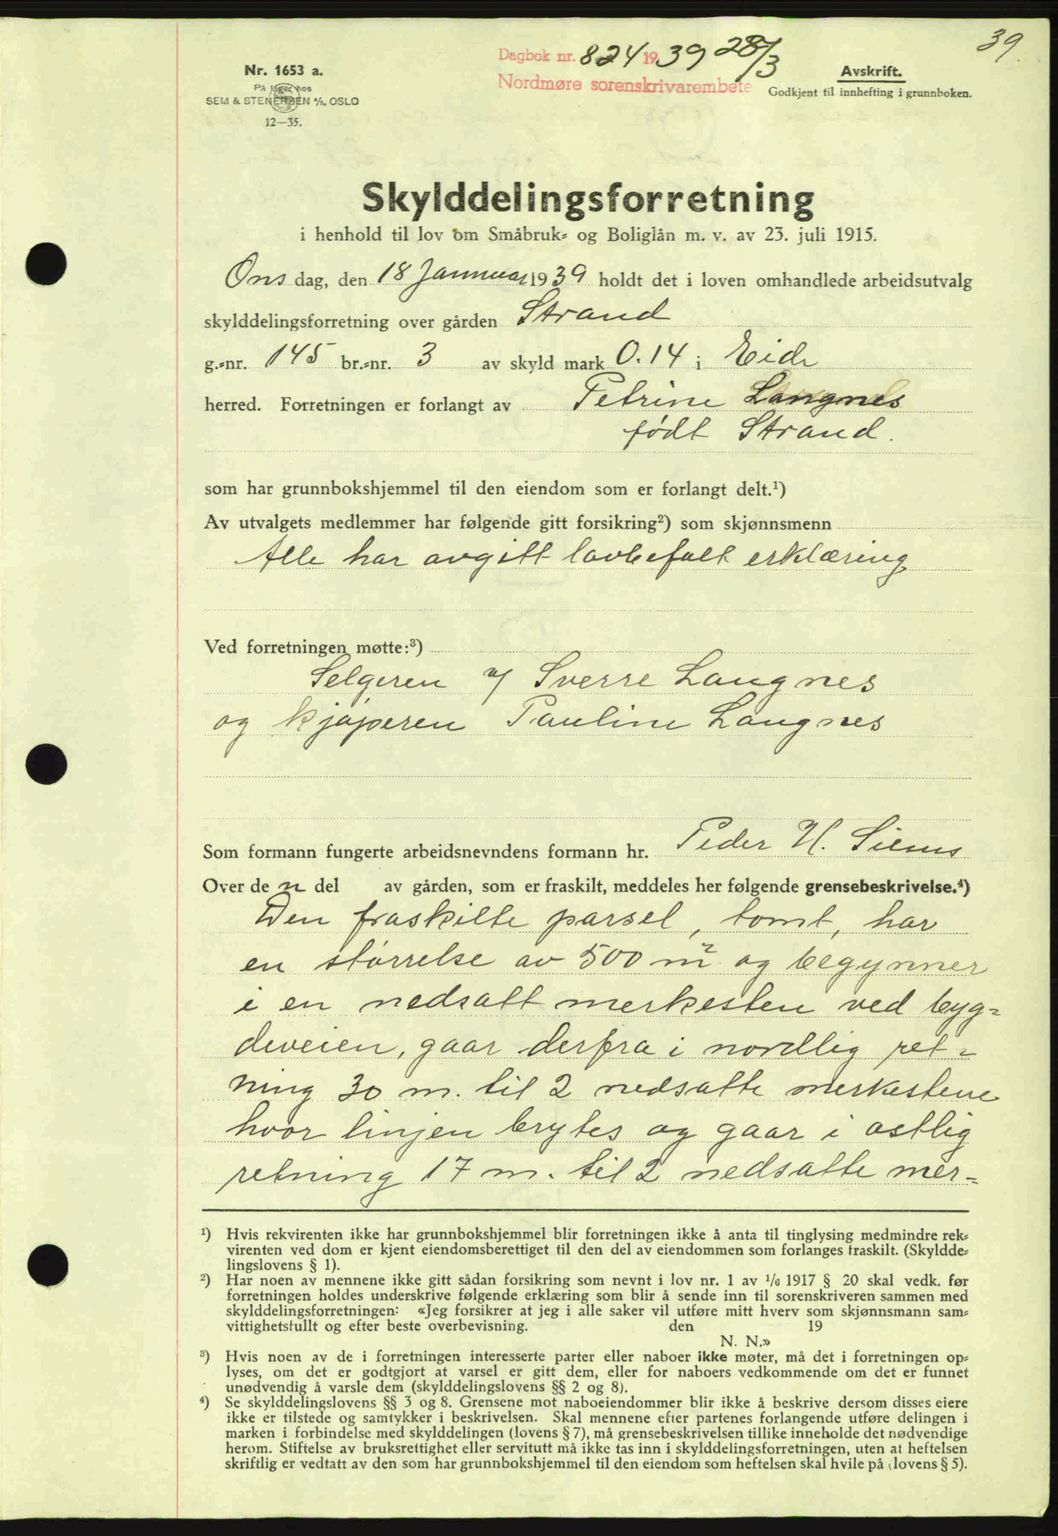 39.
Dagbok nr. 824 1939 28/3
Nordmøre sorenskrivarembete
Nr. 1653 a.
På lager hos
SEM & STENERSEN A/S. OSLO
12—35.
Avskrift.
Godkjent til innhefting i grunnboken.
Skylddelingsforretning
i henhold til lov om Småbruk- og Boliglån m. v. av 23. juli 1915.
Ons dag, den 18 Januar 1939 holdt det i loven omhandlede arbeidsutvalg
skylddelingsforretning over gården Strand
g.-nr. 145 br.-nr. 3 av skyld mark 0.14 i Eide
herred. Forretningen er forlangt av Petrine Langnes
født Strand.
som har grunnbokshjemmel til den eiendom som er forlangt delt.¹)
Av utvalgets medlemmer har følgende gitt forsikring²) som skjønnsmenn
Alle har avgitt lovbefalt erklæring
Ved forretningen møtte:³)
Selgeren v/ Sverre Langnes
og kjøperen Pauline Langnes
Som formann fungerte arbeidsnevndens formann hr. Peder H. Silnes
Over den del av gården, som er fraskilt, meddeles her følgende grensebeskrivelse.⁴)
Den fraskilte parsel, tomt, har
en størrelse av 500 m² og begynner
i en nedsatt merkesten ved byg-
deveien, gaar derfra i nordlig ret-
ning 30 m. til 2 nedsatte merkestene
hvor linjen brytes og gaar i østlig
retning 17 m. til 2 nedsatte mer-
¹) Hvis rekvirenten ikke har grunnbokshjemmel blir forretningen ikke å anta til tinglysing medmindre rek-
virenten ved dom er kjent eiendomsberettiget til den del av eiendommen som forlanges fraskilt. (Skyldde-
lingslovens § 1).
²) Har noen av mennene ikke gitt sådan forsikring som nevnt i lov nr. 1 av 1/6 1917 § 20 skal vedk. før
forretningen holdes underskrive følgende erklæring som blir å sende inn til sorenskriveren sammen med
skylddelingsforretningen: «Jeg forsikrer at jeg i alle saker vil utføre mitt hverv som skjønnsmann sam-
vittighetsfullt og efter beste overbevisning. den 19
N. N.»
³) Hvis noen av de i forretningen interesserte parter eller naboer ikke møter, må det i forretningen op-
lyses, om det er godtgjort at varsel er gitt dem, eller for naboers vedkommende om det er funnet
unødvendig å varsle dem (skylddelingslovens §§ 2 og 8).
⁴) Se skylddelingslovens §§ 3 og 8. Grensene mot naboeiendommer blir ikke å beskrive dersom disses eiere
ikke er tilstede og samtykker i beskrivelsen. Skal mennene efter partenes forlangende utføre delingen i
marken i forbindelse med skylddelingen (lovens § 7), må grensebeskrivelsen tillike inneholde det nødvendige
herom. Stiftelse av bruksrettighet eller servitutt må ikke tas inn i skylddelingsforretningen, uten at heftelsen
skriftlig er vedtatt av den som har grunnbokshjemmel til den eiendom som heftelsen skal hvile på (lovens § 5).